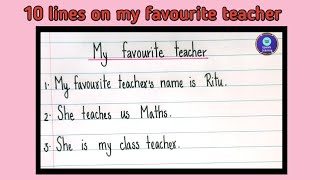 10 lines on my favourite teacher
My favourite teacher
1. My favourite teacher's name is Ritu.
2. She teaches us Maths.
3. She is my class teacher.